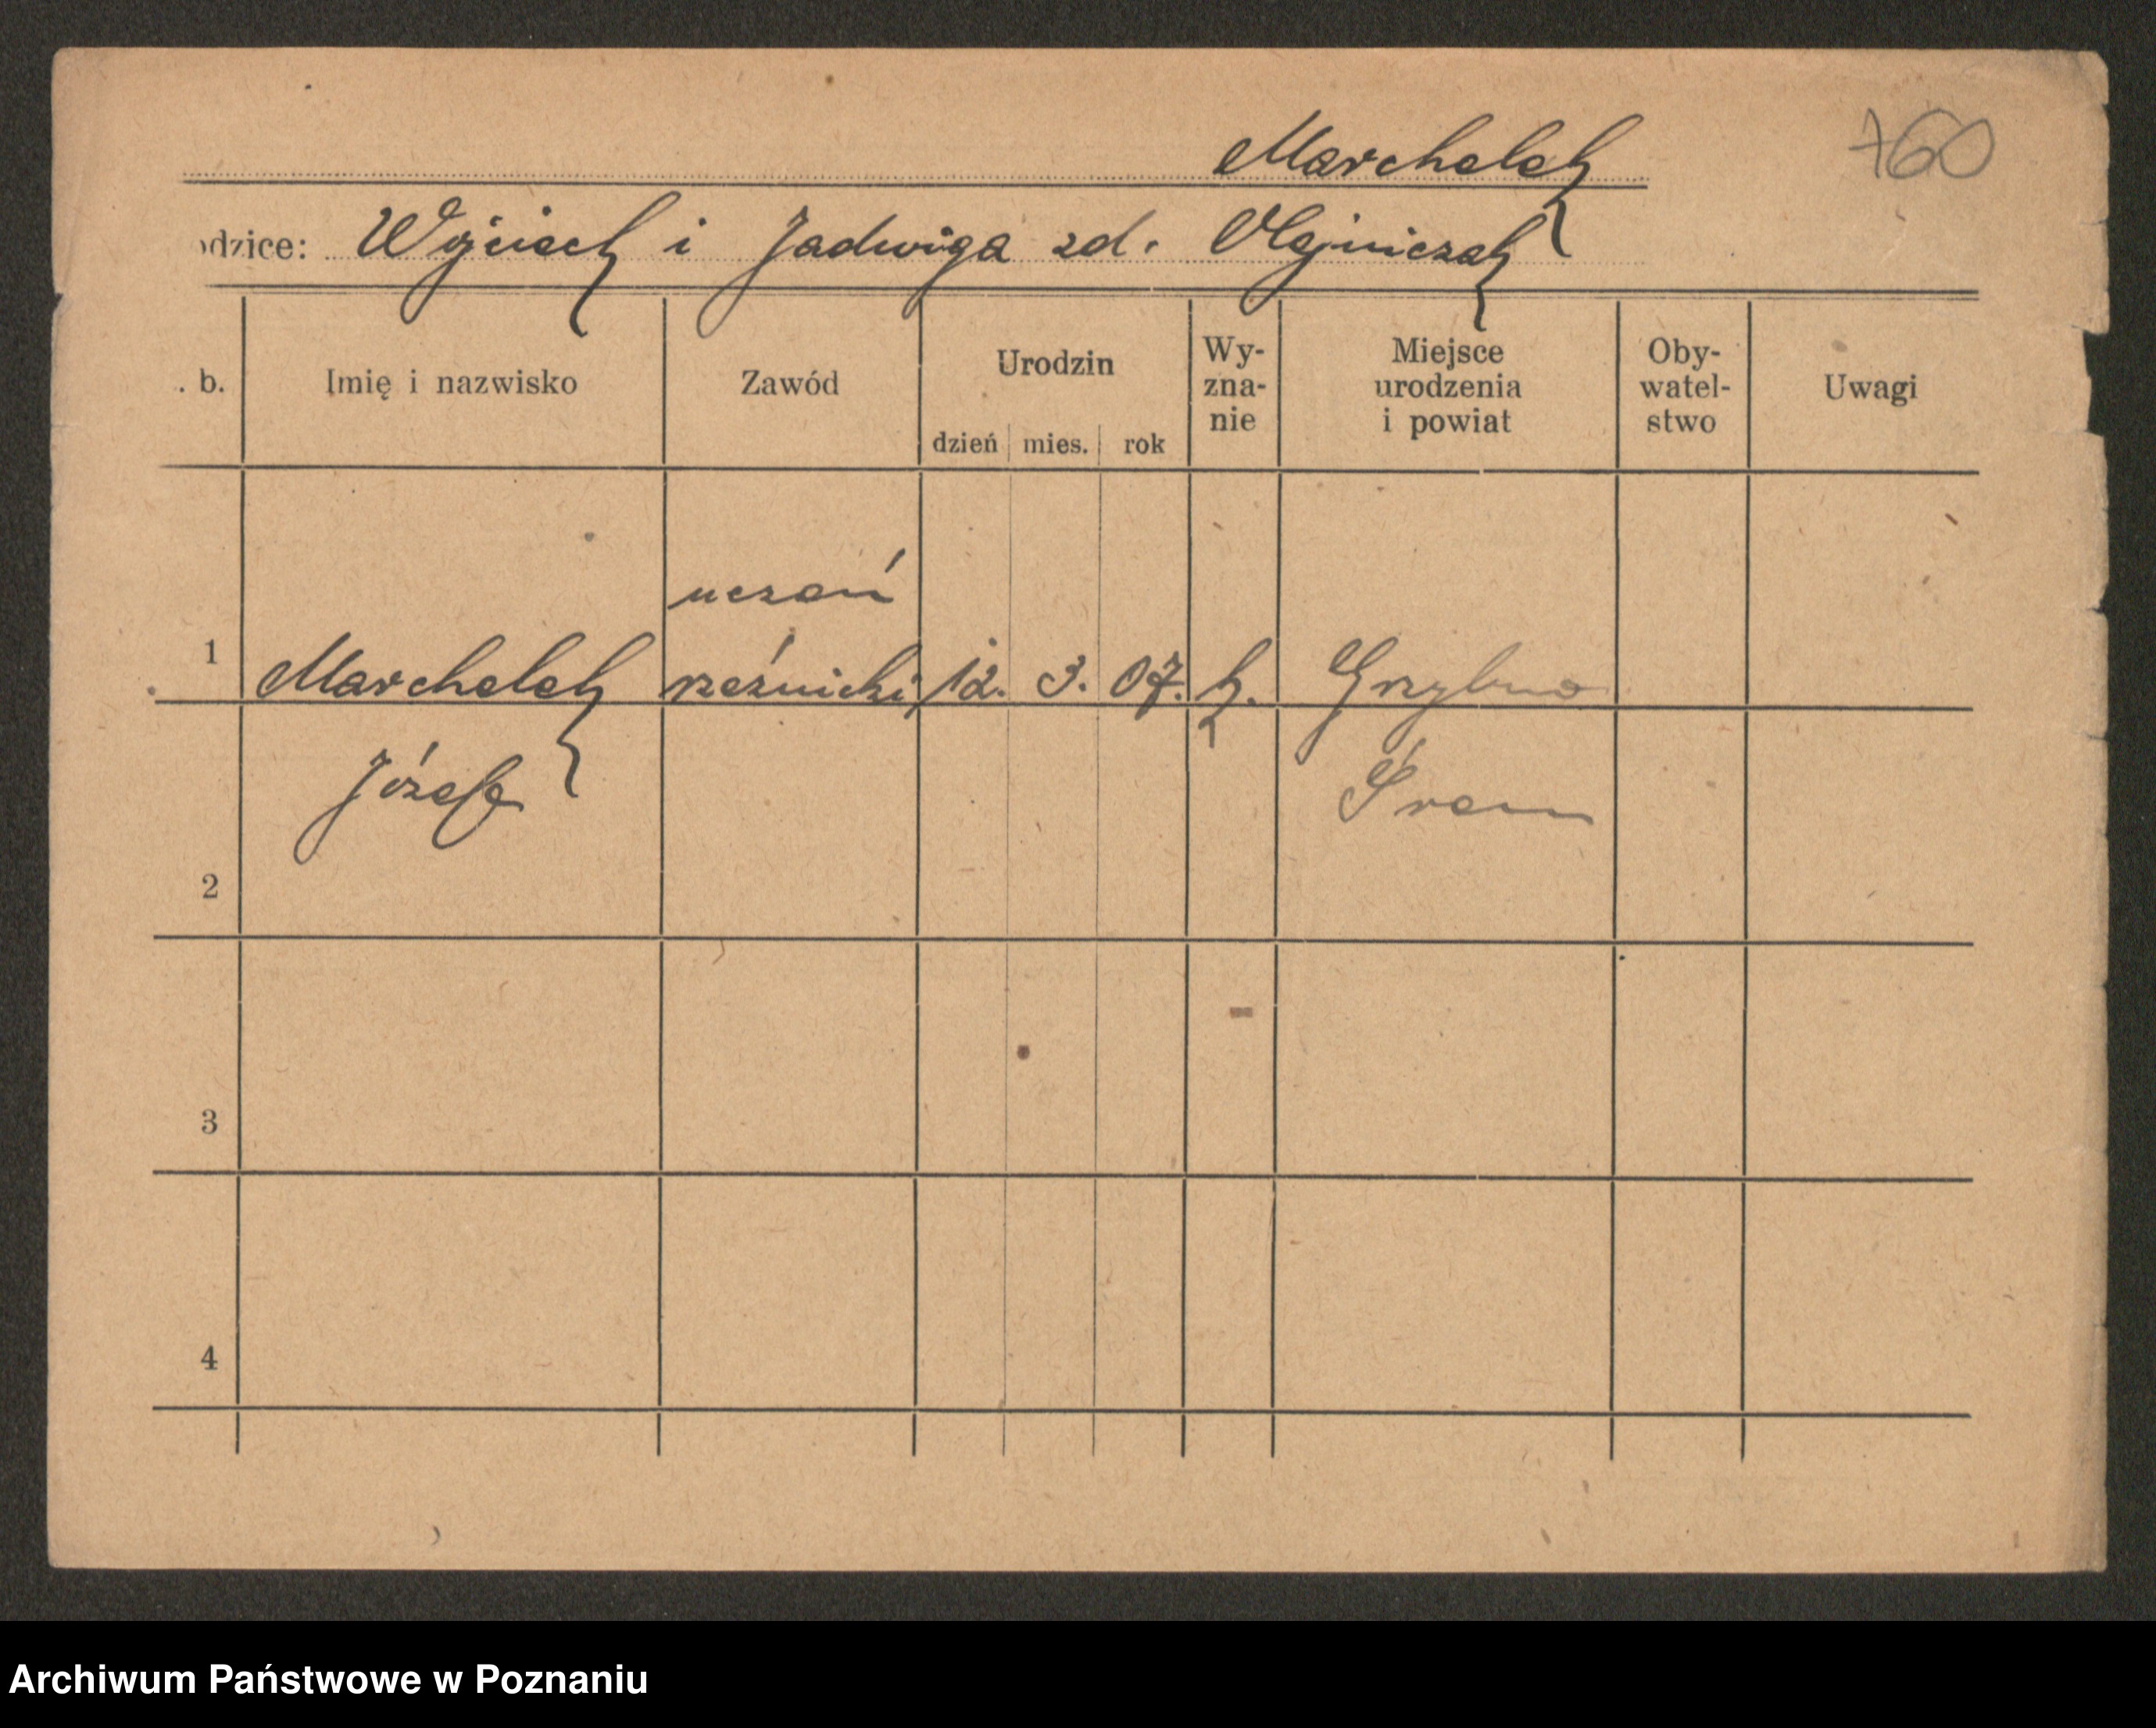 Marchelek
760
odzice: Wojciech i Jadwiga zd. Olejniczak
. b.
Imię i nazwisko
Zawód
Urodzin
dzień mies. rok
Wy-
zna-
nie
Miejsce
urodzenia
i powiat
Oby-
watel-
stwo
Uwagi
uczeń
1 Marchelek rzeźnicki 12. 3. 07. k. Grzybno
Józef Śrem
2
3
4
Archiwum Państwowe w Poznaniu